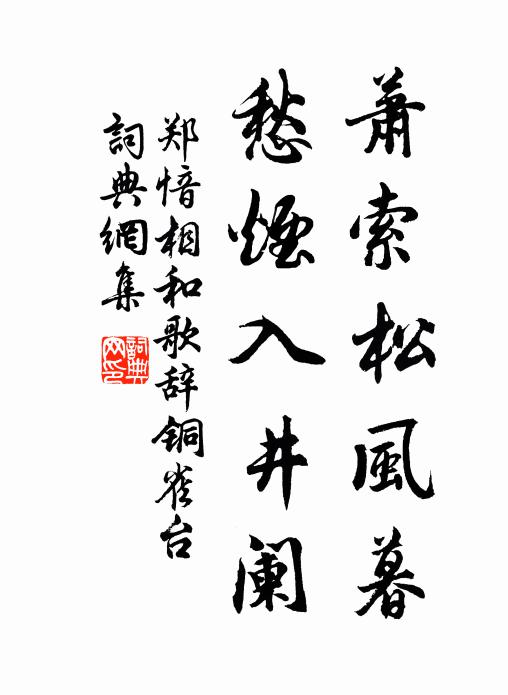 萧索松風暮
愁煙入井阑
郑愔相和歌辞铜雀台
詞典網集
詞典網印